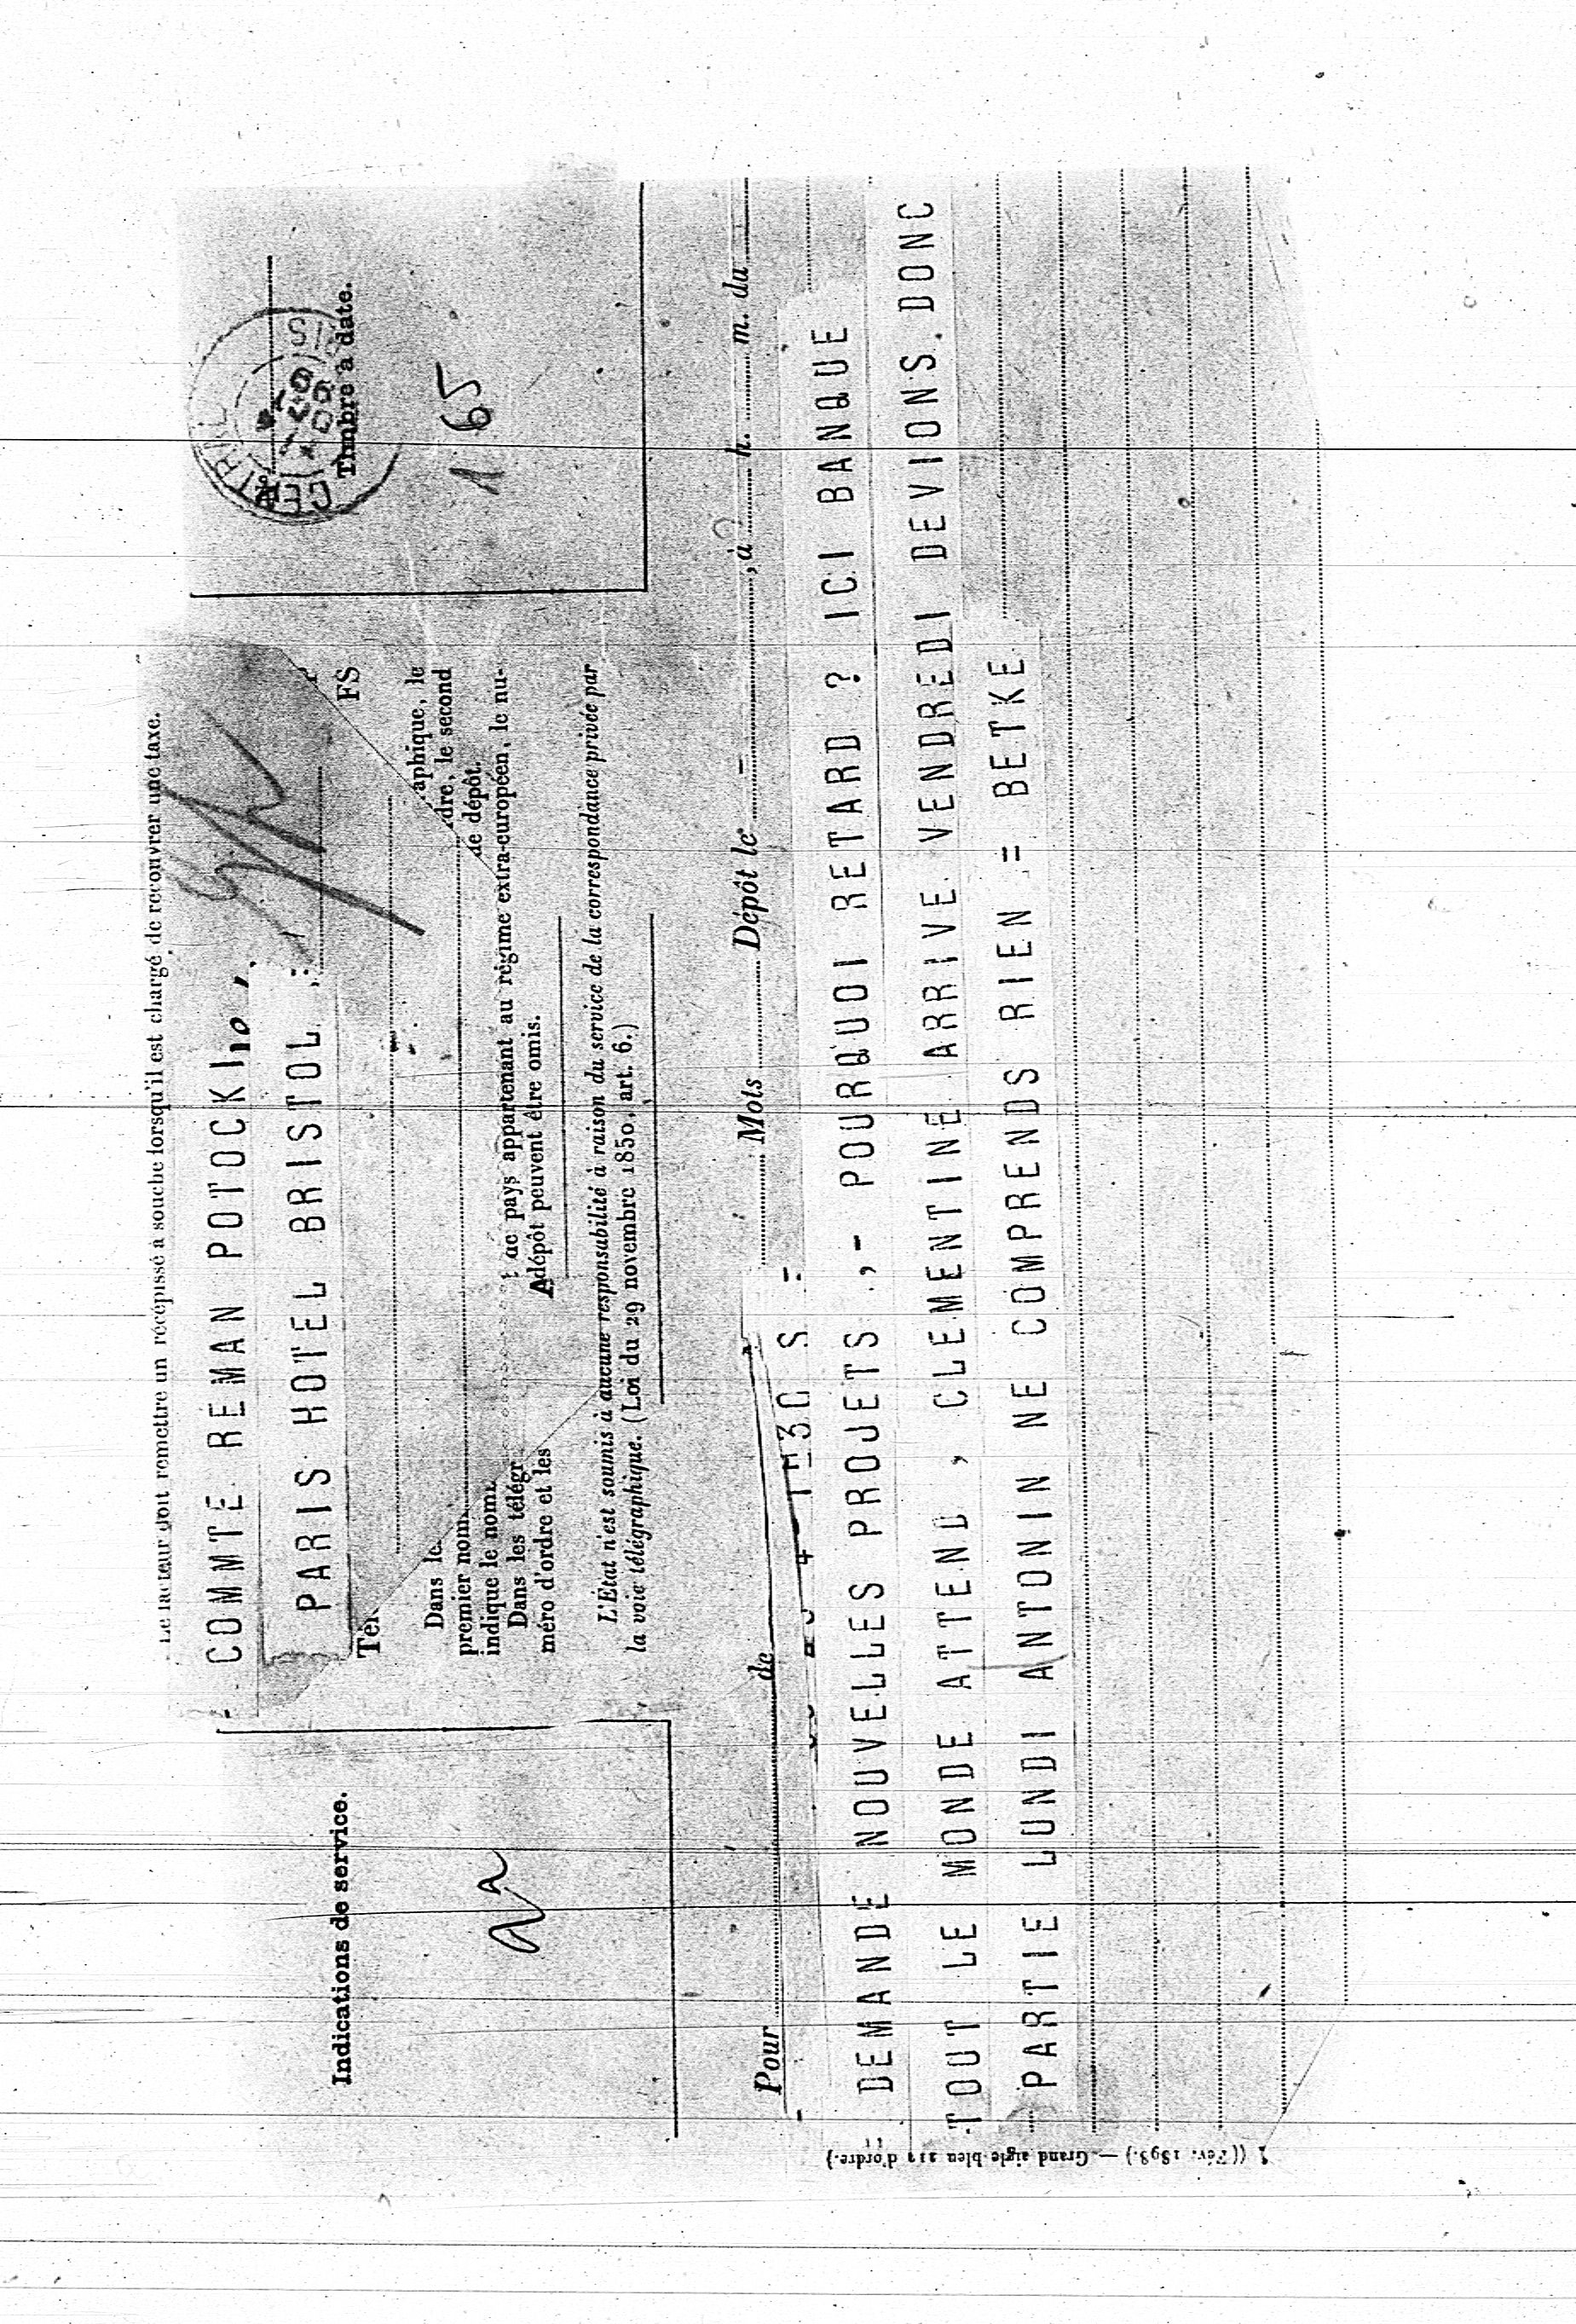 Le facteur doit remettre un récépissé à souche lorsqu'il est chargé de recouvrer une taxe.
Indications de service.
COMTE REMAN POTOCKI
PARIS HOTEL BRISTOL :
FS
Timbre à date.
CENTRAL
165
Dans le aphique, le
premier nom dre, le second
indique le nom de dépôt.
Dans les télégr de pays appartenant au régime extra-européen, le nu-
méro d'ordre et les dépôt peuvent être omis.
L'État n'est soumis à aucune responsabilité à raison du service de la correspondance privée par
la voie télégraphique. (Loi du 29 novembre 1850, art. 6.)
Pour de Mots Dépôt le , à h. m. du
S =
DEMANDE NOUVELLES PROJETS ,- POURQUOI RETARD ? ICI BANQUE
TOUT LE MONDE ATTEND , CLEMENTINE ARRIVE VENDREDI DEVIONS DONC
PARTIE LUNDI ANTONIN NE COMPRENDS RIEN = BETKE
(Fév. 1898.) — Grand aigle bleu d'ordre.)